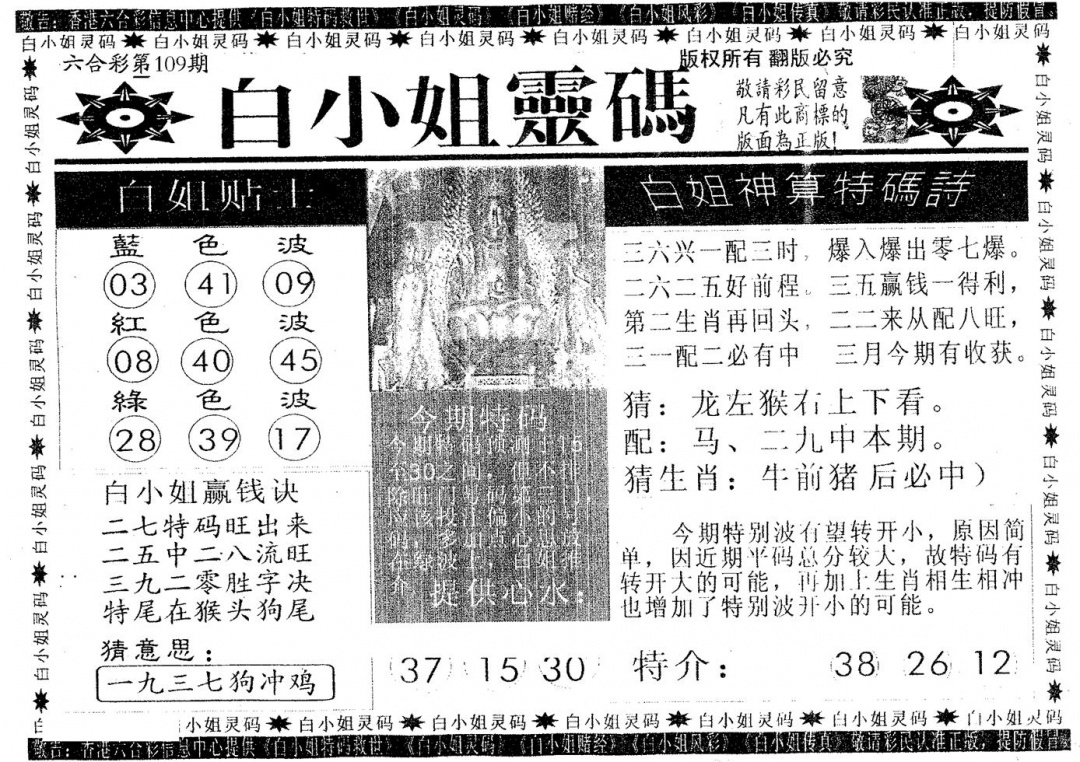 敬告：香港六合彩信息中心提供《白小姐特码救世》《白小姐灵码》《白小姐赌经》《白小姐风彩》《白小姐传真》敬请彩民认准正版，提防假冒
白小姐灵码 白小姐灵码 白小姐灵码 白小姐灵码 白小姐灵码 白小姐灵码 白小姐灵码 白小姐灵码
六合彩第109期
版权所有 翻版必究
白小姐靈碼
敬請彩民留意
凡有此商標的
版面為正版!
白姐贴士
藍色波
03 41 09
紅色波
08 40 45
綠色波
28 39 17
白小姐赢钱诀
二七特码旺出来
二五中二八流旺
三九二零胜字决
特尾在猴头狗尾
猜意思：
一九三七狗冲鸡
今期特码
提供心水：
37 15 30
白姐神算特碼詩
三六兴一配三时，爆入爆出零七爆。
二六二五好前程。三五赢钱一得利，
第二生肖再回头，二二来从配八旺，
三一配二必有中 三月今期有收获。
猜：龙左猴右上下看。
配：马、二九中本期。
猜生肖：牛前猪后必中）
今期特别波有望转开小，原因简
单，因近期平码总分较大，故特码有
转开大的可能，再加上生肖相生相冲
也增加了特别波开小的可能。
特介：
38 26 12
小姐灵码 白小姐灵码 白小姐灵码 白小姐灵码 白小姐灵码 白小姐灵码 白小姐灵码
敬告：香港六合彩信息中心提供《白小姐特码救世》《白小姐灵码》《白小姐赌经》《白小姐风彩》《白小姐传真》敬请彩民认准正版，提防假冒
白小姐灵码 白小姐灵码 白小姐灵码 白小姐灵码 白小姐灵码
白小姐灵码 白小姐灵码 白小姐灵码 白小姐灵码 白小姐灵码